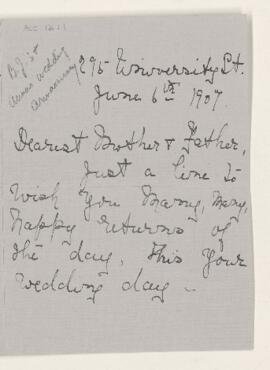 295 University St.
June 6th 1907.
Dearest Mother & Father,
Just a line to
wish you Many, Many,
happy returns of
the day, this your
wedding day –
wedding
anniversary